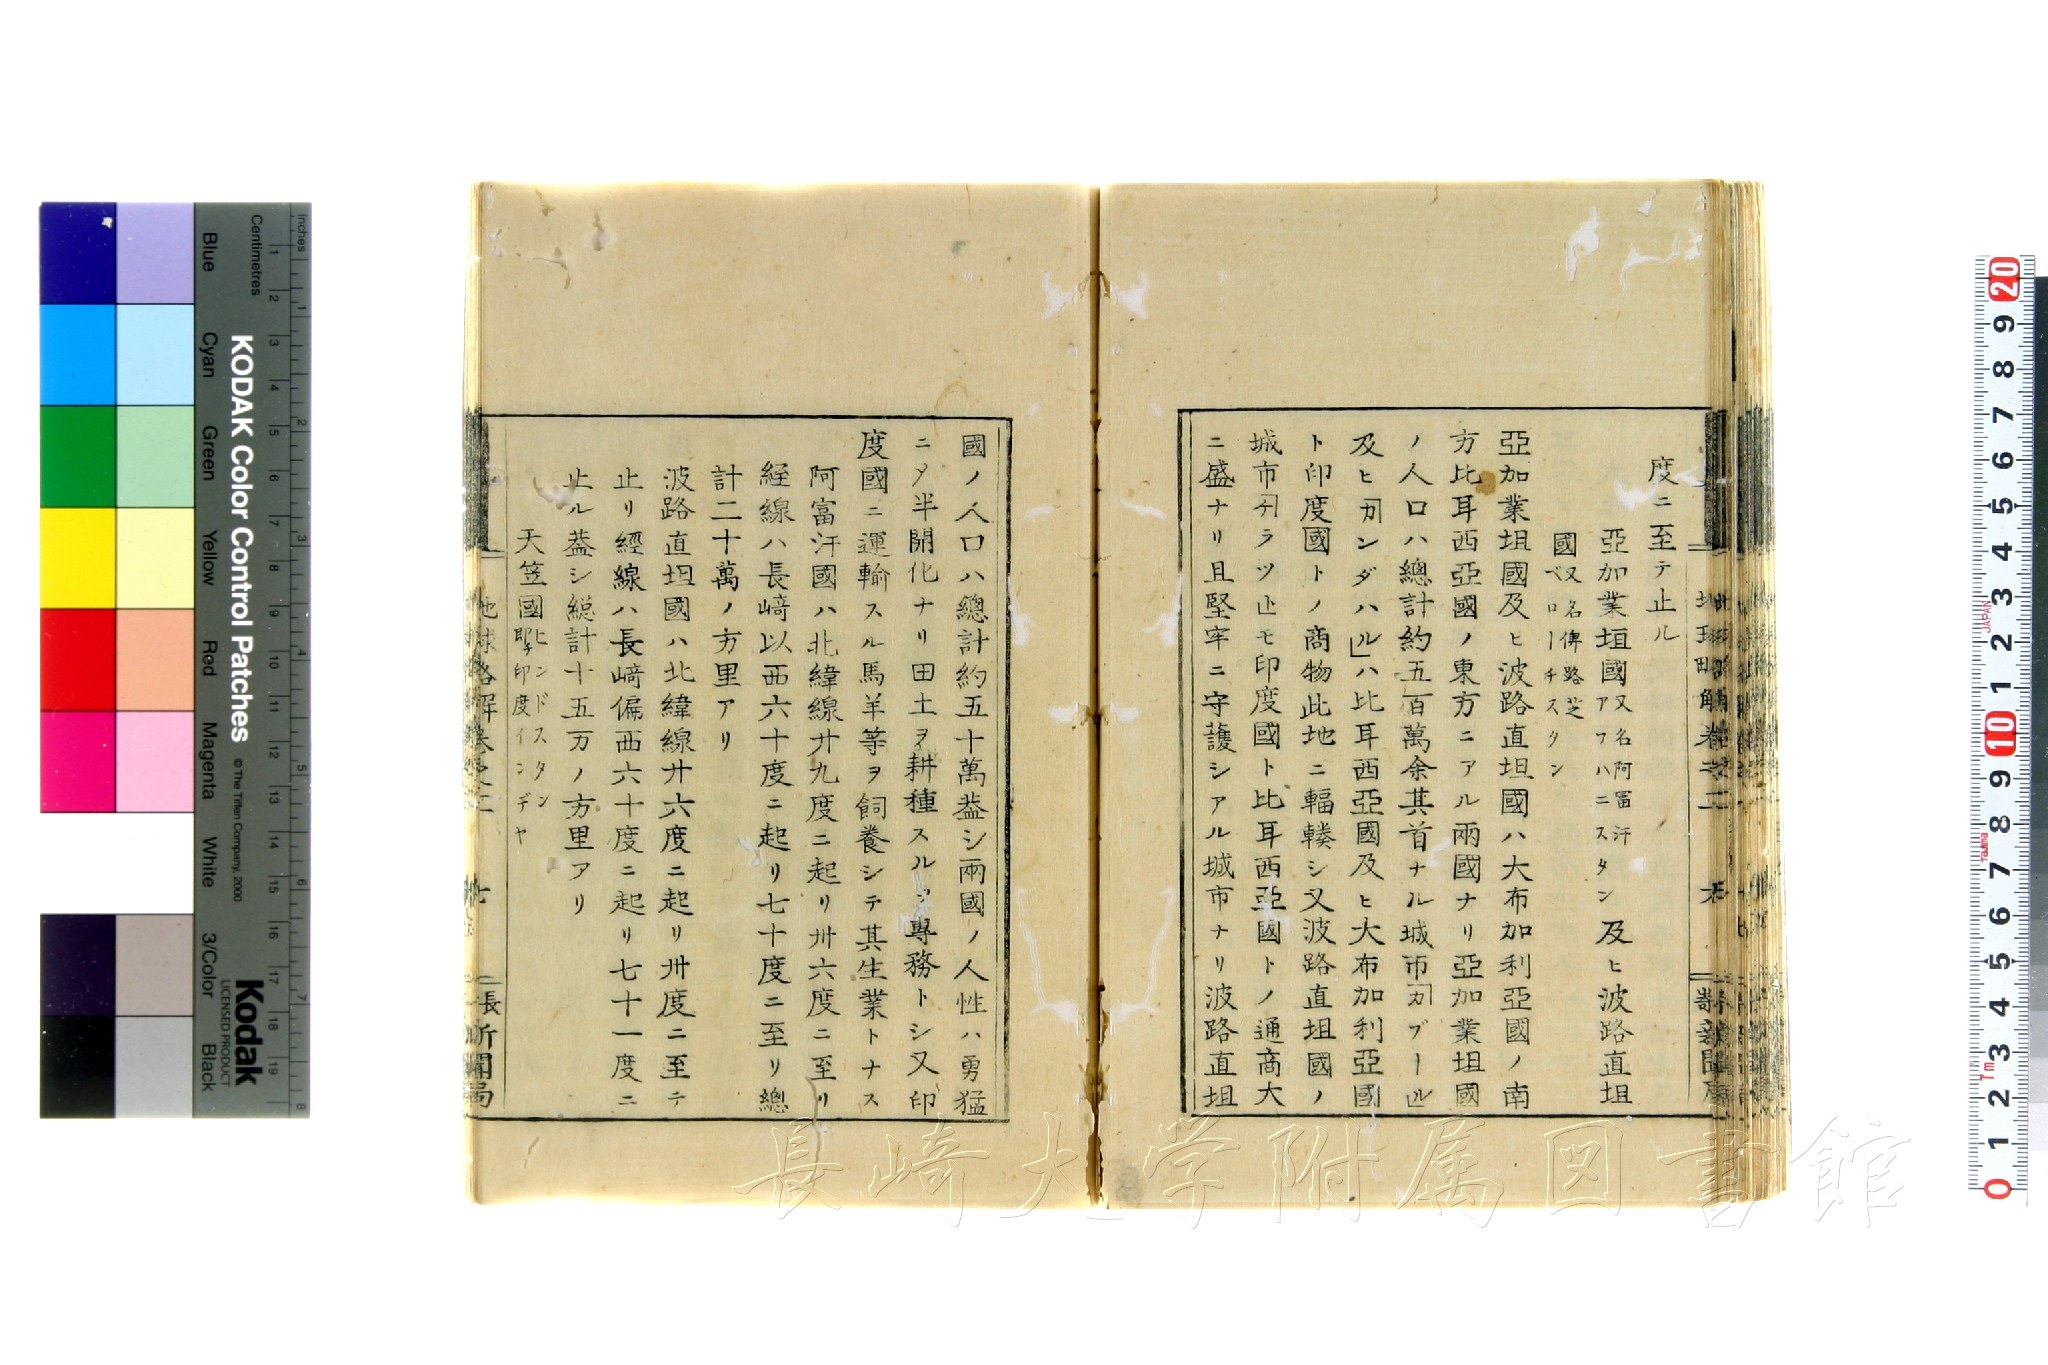 度ニ至テ止ル
亞加業坦國又名阿冨汗アフハニスタン及ヒ波路直坦
國又名俾路芝ベローチスタン
亞加業坦國及ヒ波路直坦國ハ大布加利亞國ノ南
方比耳西亞國ノ東方ニアル兩國ナリ亞加業坦國
ノ人口ハ總計約五百萬余其首ナル城市「カブール」
及ヒ「カンダハル」ハ比耳西亞國及ヒ大布加利亞國
ト印度國トノ商物此地ニ輻輳シ又波路直坦國ノ
城市ラツ止モ印度國ト比耳西亞國トノ通商大
ニ盛ナリ且堅牢ニ守護シアル城市ナリ波路直坦
國ノ人口ハ總計約五十萬葢シ兩國ノ人性ハ勇猛
ニメ半開化ナリ田土ヲ耕種スルヿ專務トシ又印
度國ニ運輸スル馬羊等ヲ飼養シテ其生業トナス
阿富汗國ハ北緯線廿九度ニ起リ卅六度ニ至リ
経線ハ長﨑以西六十度ニ起リ七十度ニ至リ總
計二十萬ノ方里アリ
波路直坦國ハ北緯線廿六度ニ起リ卅度ニ至テ
止リ經線ハ長﨑偏西六十度ニ起リ七十一度ニ
止ル葢シ総計十五万ノ方里アリ
天笠國ヒンドスタン即印度インデヤ
地球略解卷之二
長﨑大学附属図書館
KODAK Color Control Patches
© The Tiffen Company, 2000
Kodak
LICENSED PRODUCT
Inches
Centimetres
Blue
Cyan
Green
Yellow
Red
Magenta
White
3/Color
Black
1 2 3 4 5 6 7 8 9 10 11 12 13 14 15 16 17 18 19
1 2 3 4 5 6 7 8
20 9 8 7 6 5 4 3 2 1 10 9 8 7 6 5 4 3 2 1 0
JAPAN